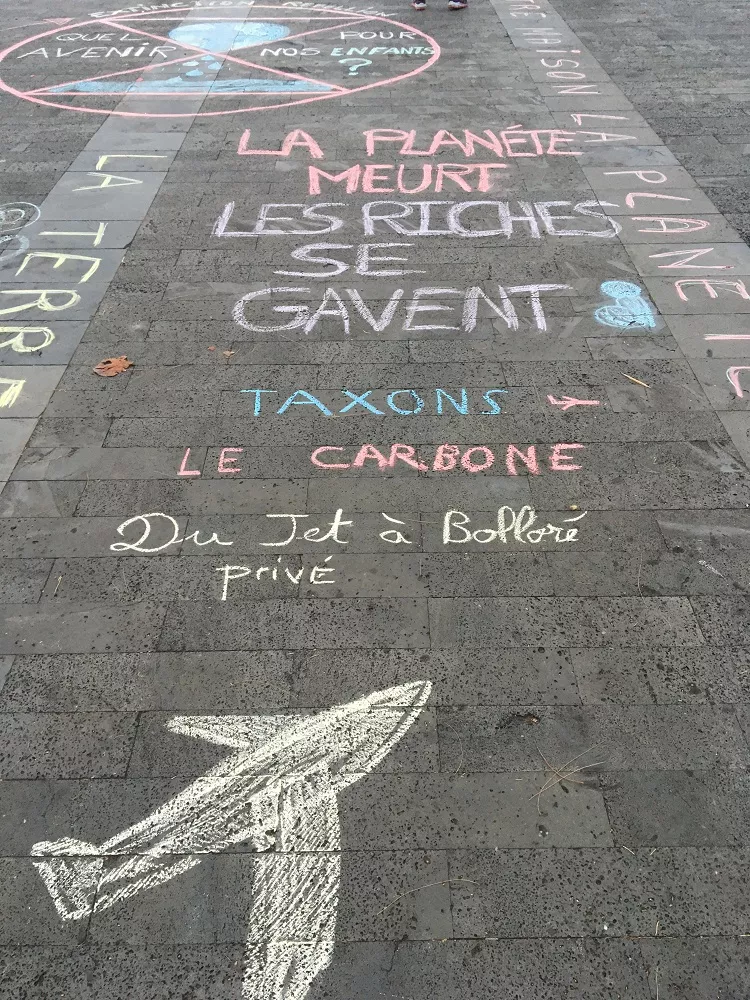 EXTINCTION REBELLION
QUEL POUR
AVENIR NOS ENFANTS
?
LA PLANÈTE
MEURT
LES RICHES
SE
GAVENT
TAXONS
LE CARBONE
Du Jet à Bolloré
privé
LA TERRE
MAISON LA PLANETE